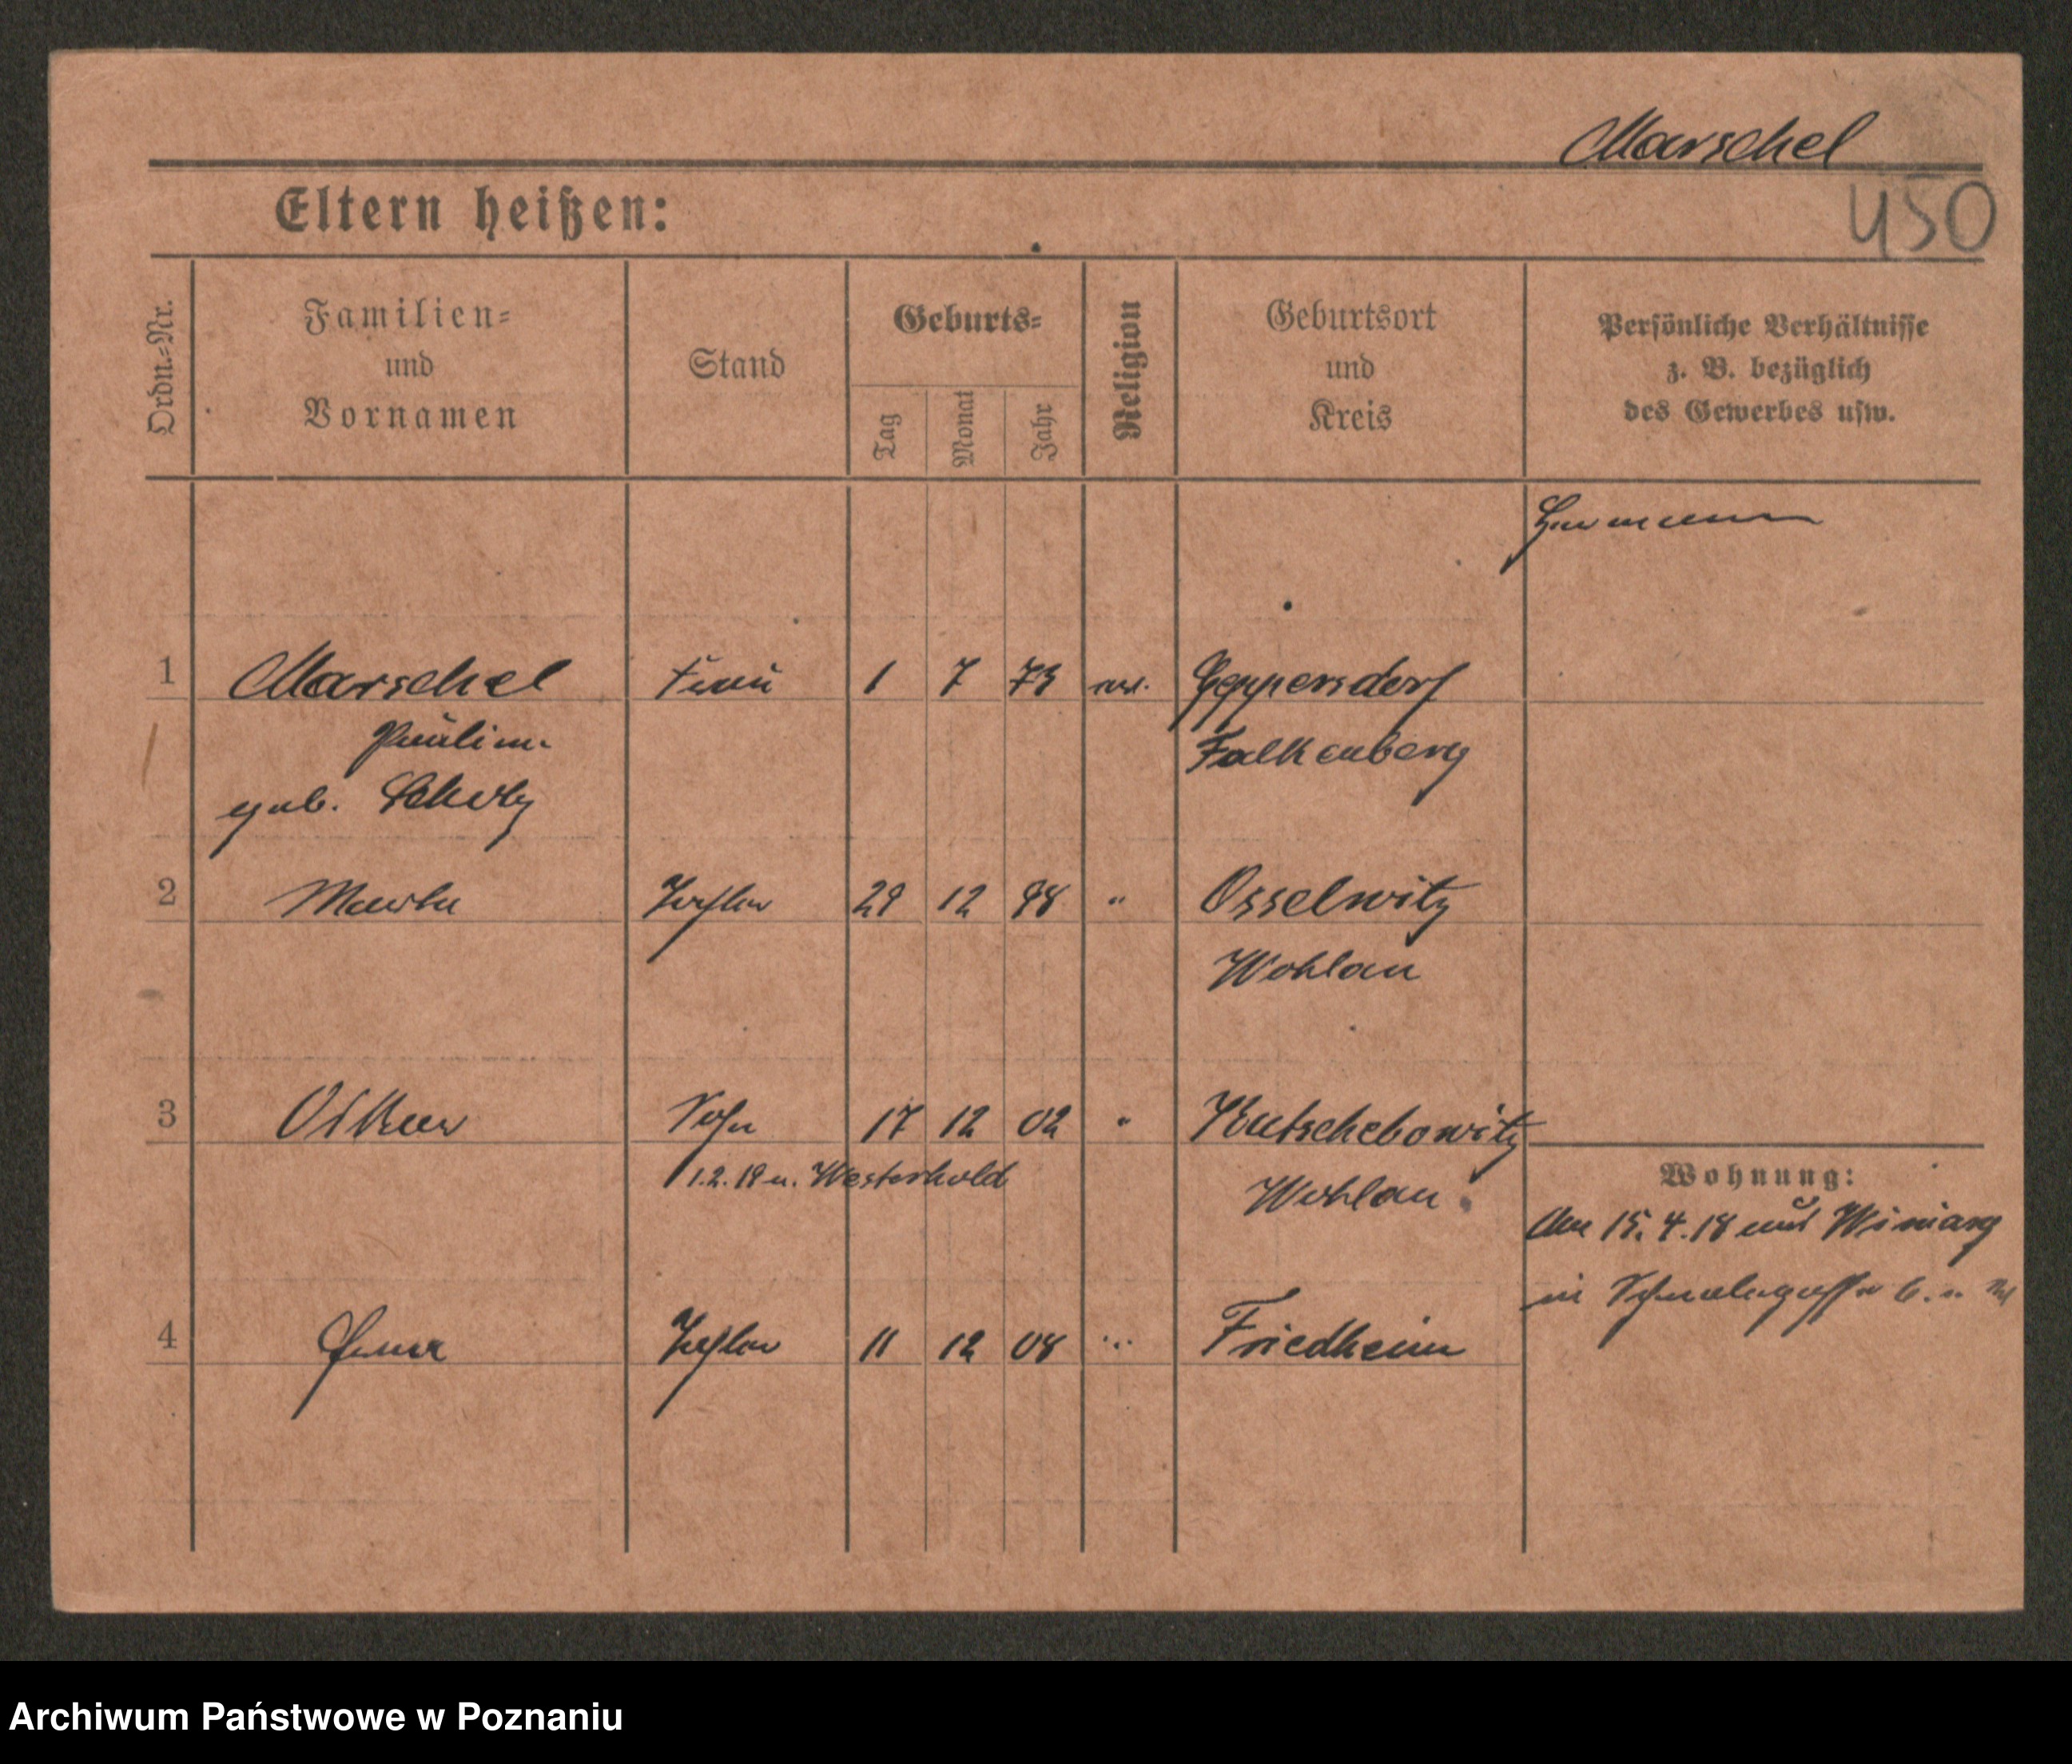 Marschel
450
Eltern heißen:
Ordn.-Nr.
Familien-
und
Vornamen
Stand
Geburts-
Tag
Monat
Jahr
Religion
Geburtsort
und
Kreis
Persönliche Verhältnisse
z. B. bezüglich
des Gewerbes usw.
Hermann
1 Marschel Frau 1 7 73 ev. Geppersdorf
Pauline Falkenberg
geb. Scholz
2 Martha Tochter 29 12 98 " Osselwitz
Wohlau
3 Oskar Sohn 17 12 02 " Krutschebowitz
1.2.19 n. Westerhold Wohlau
Wohnung:
Am 15.4.18 aus Winiary
in Schmalegasse 6.
4 Tochter 11 12 08 " Friedheim
Archiwum Państwowe w Poznaniu